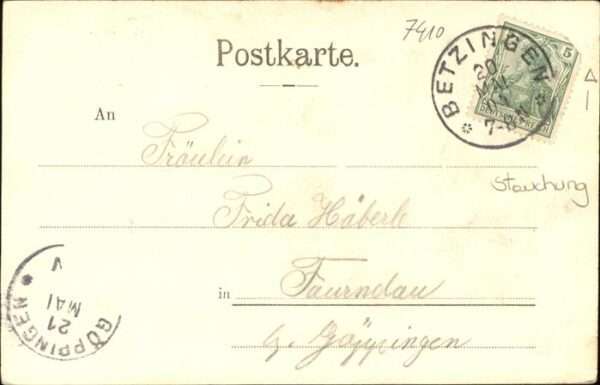 7410
Postkarte.
BETZINGEN
20
MAI
7-8
5
An
Fräulein
Stauchung
Frida Häberle
in Faurndau
b. Göppingen
GÖPPINGEN
21
MAI